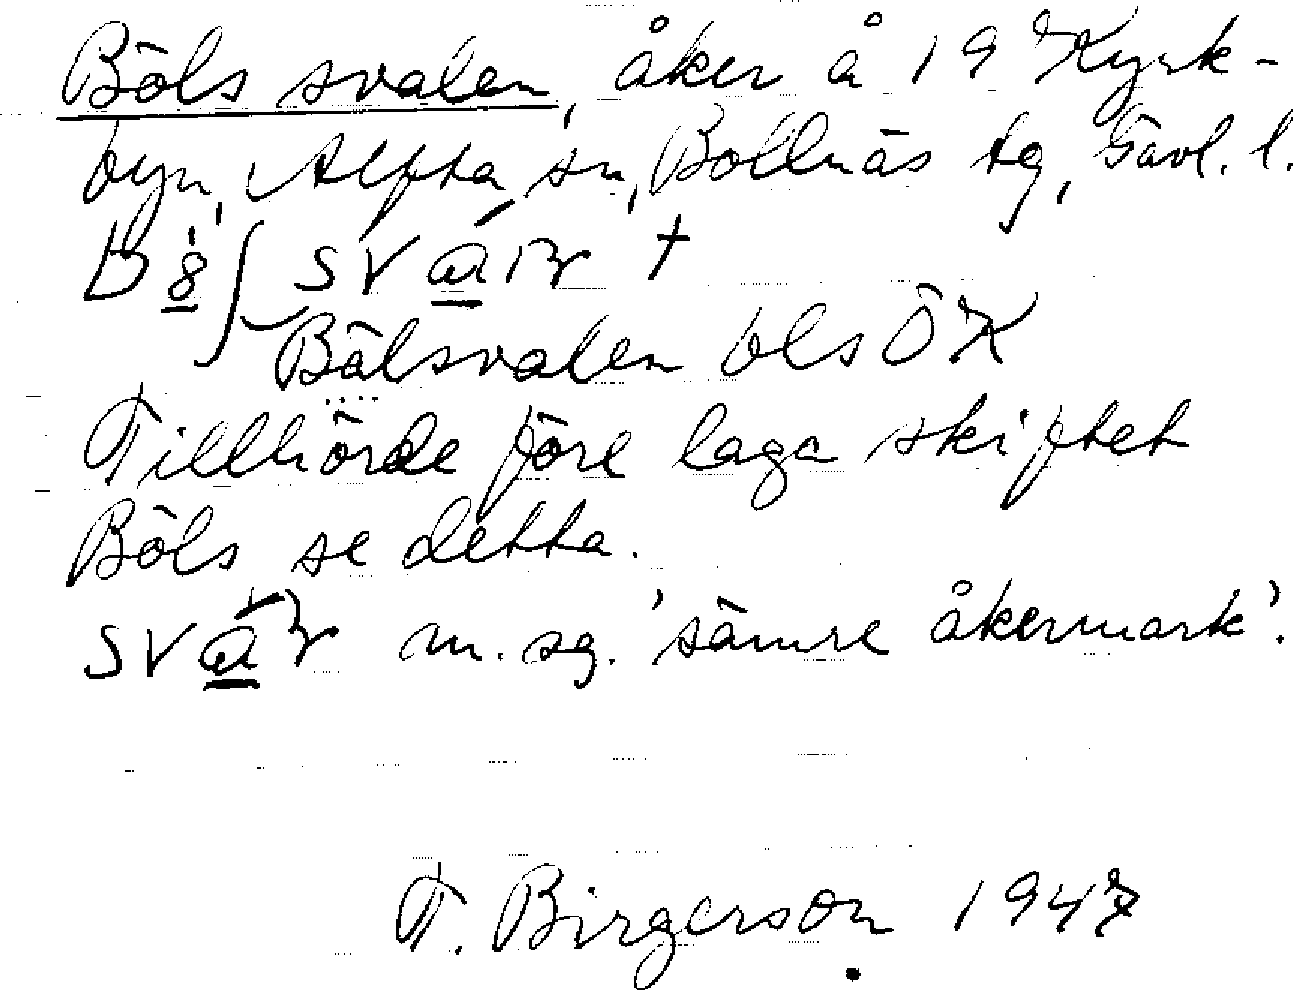 Böls svalen, åker å 19 Kyrk-
byn, Alfta sn, Bollnäs tg, Gävl. l.
sv
Bälsvalen bls ÖK
Tillhörde före laga skiftet
Böls se detta.
m. sg. 'sämre åkermark'.
T. Birgerson 1947